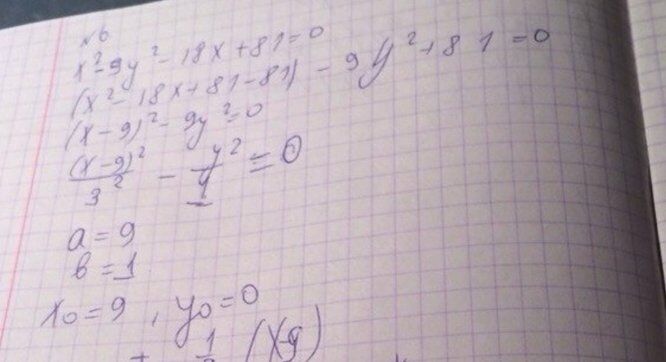 №6
x²-9y²-18x+81=0
(x²-18x+81-81)-9y²+81=0
(x-9)²-9y²=0
(x-9)²/3² - y²/1 = 0
a=9
b=1
x₀=9, y₀=0
(x-9)